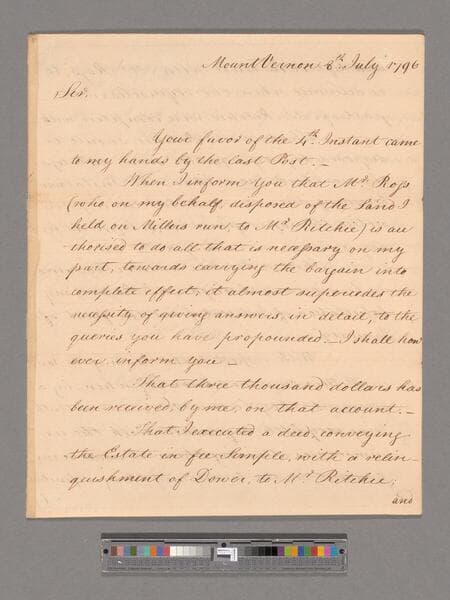 Mount Vernon 8th July 1796
Sir,
Your favor of the 4th Instant came
to my hands by the last Post. —
When I inform you that Mr Ross
(who on my behalf disposed of the Land I
held on Millers run, to Mr Ritchie) is au
thorised to do all that is necessary on my
part, towards carrying the bargain into
complete effect, it almost supercedes the
necessity of giving answers, in detail, to the
queries you have propounded. — I shall how
ever inform you —
That three thousand dollars has
been received, by me, on that account. —
That I executed a deed, conveying
the Estate in fee Simple, with a relin-
quishment of Dower, to Mr Ritchie;
and